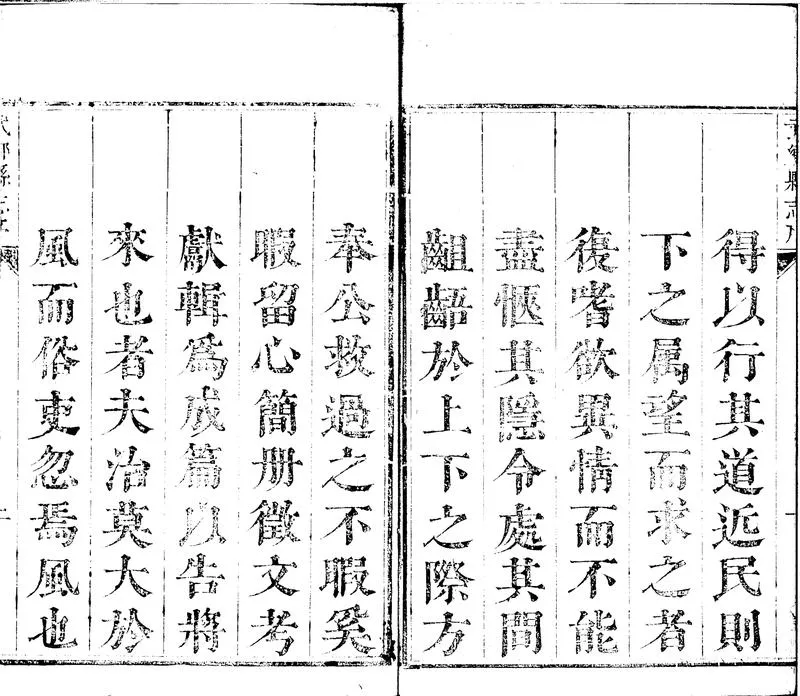 得以行其道近民則
下之属望而求之者
復嗜欲異情而不能
盡愜其隱令處其間
齟齬於上下之際方
奉公救過之不暇奚
暇留心簡册徵文考
獻輯爲成篇以告將
來也者夫治莫大於
風而俗吏忽焉風也